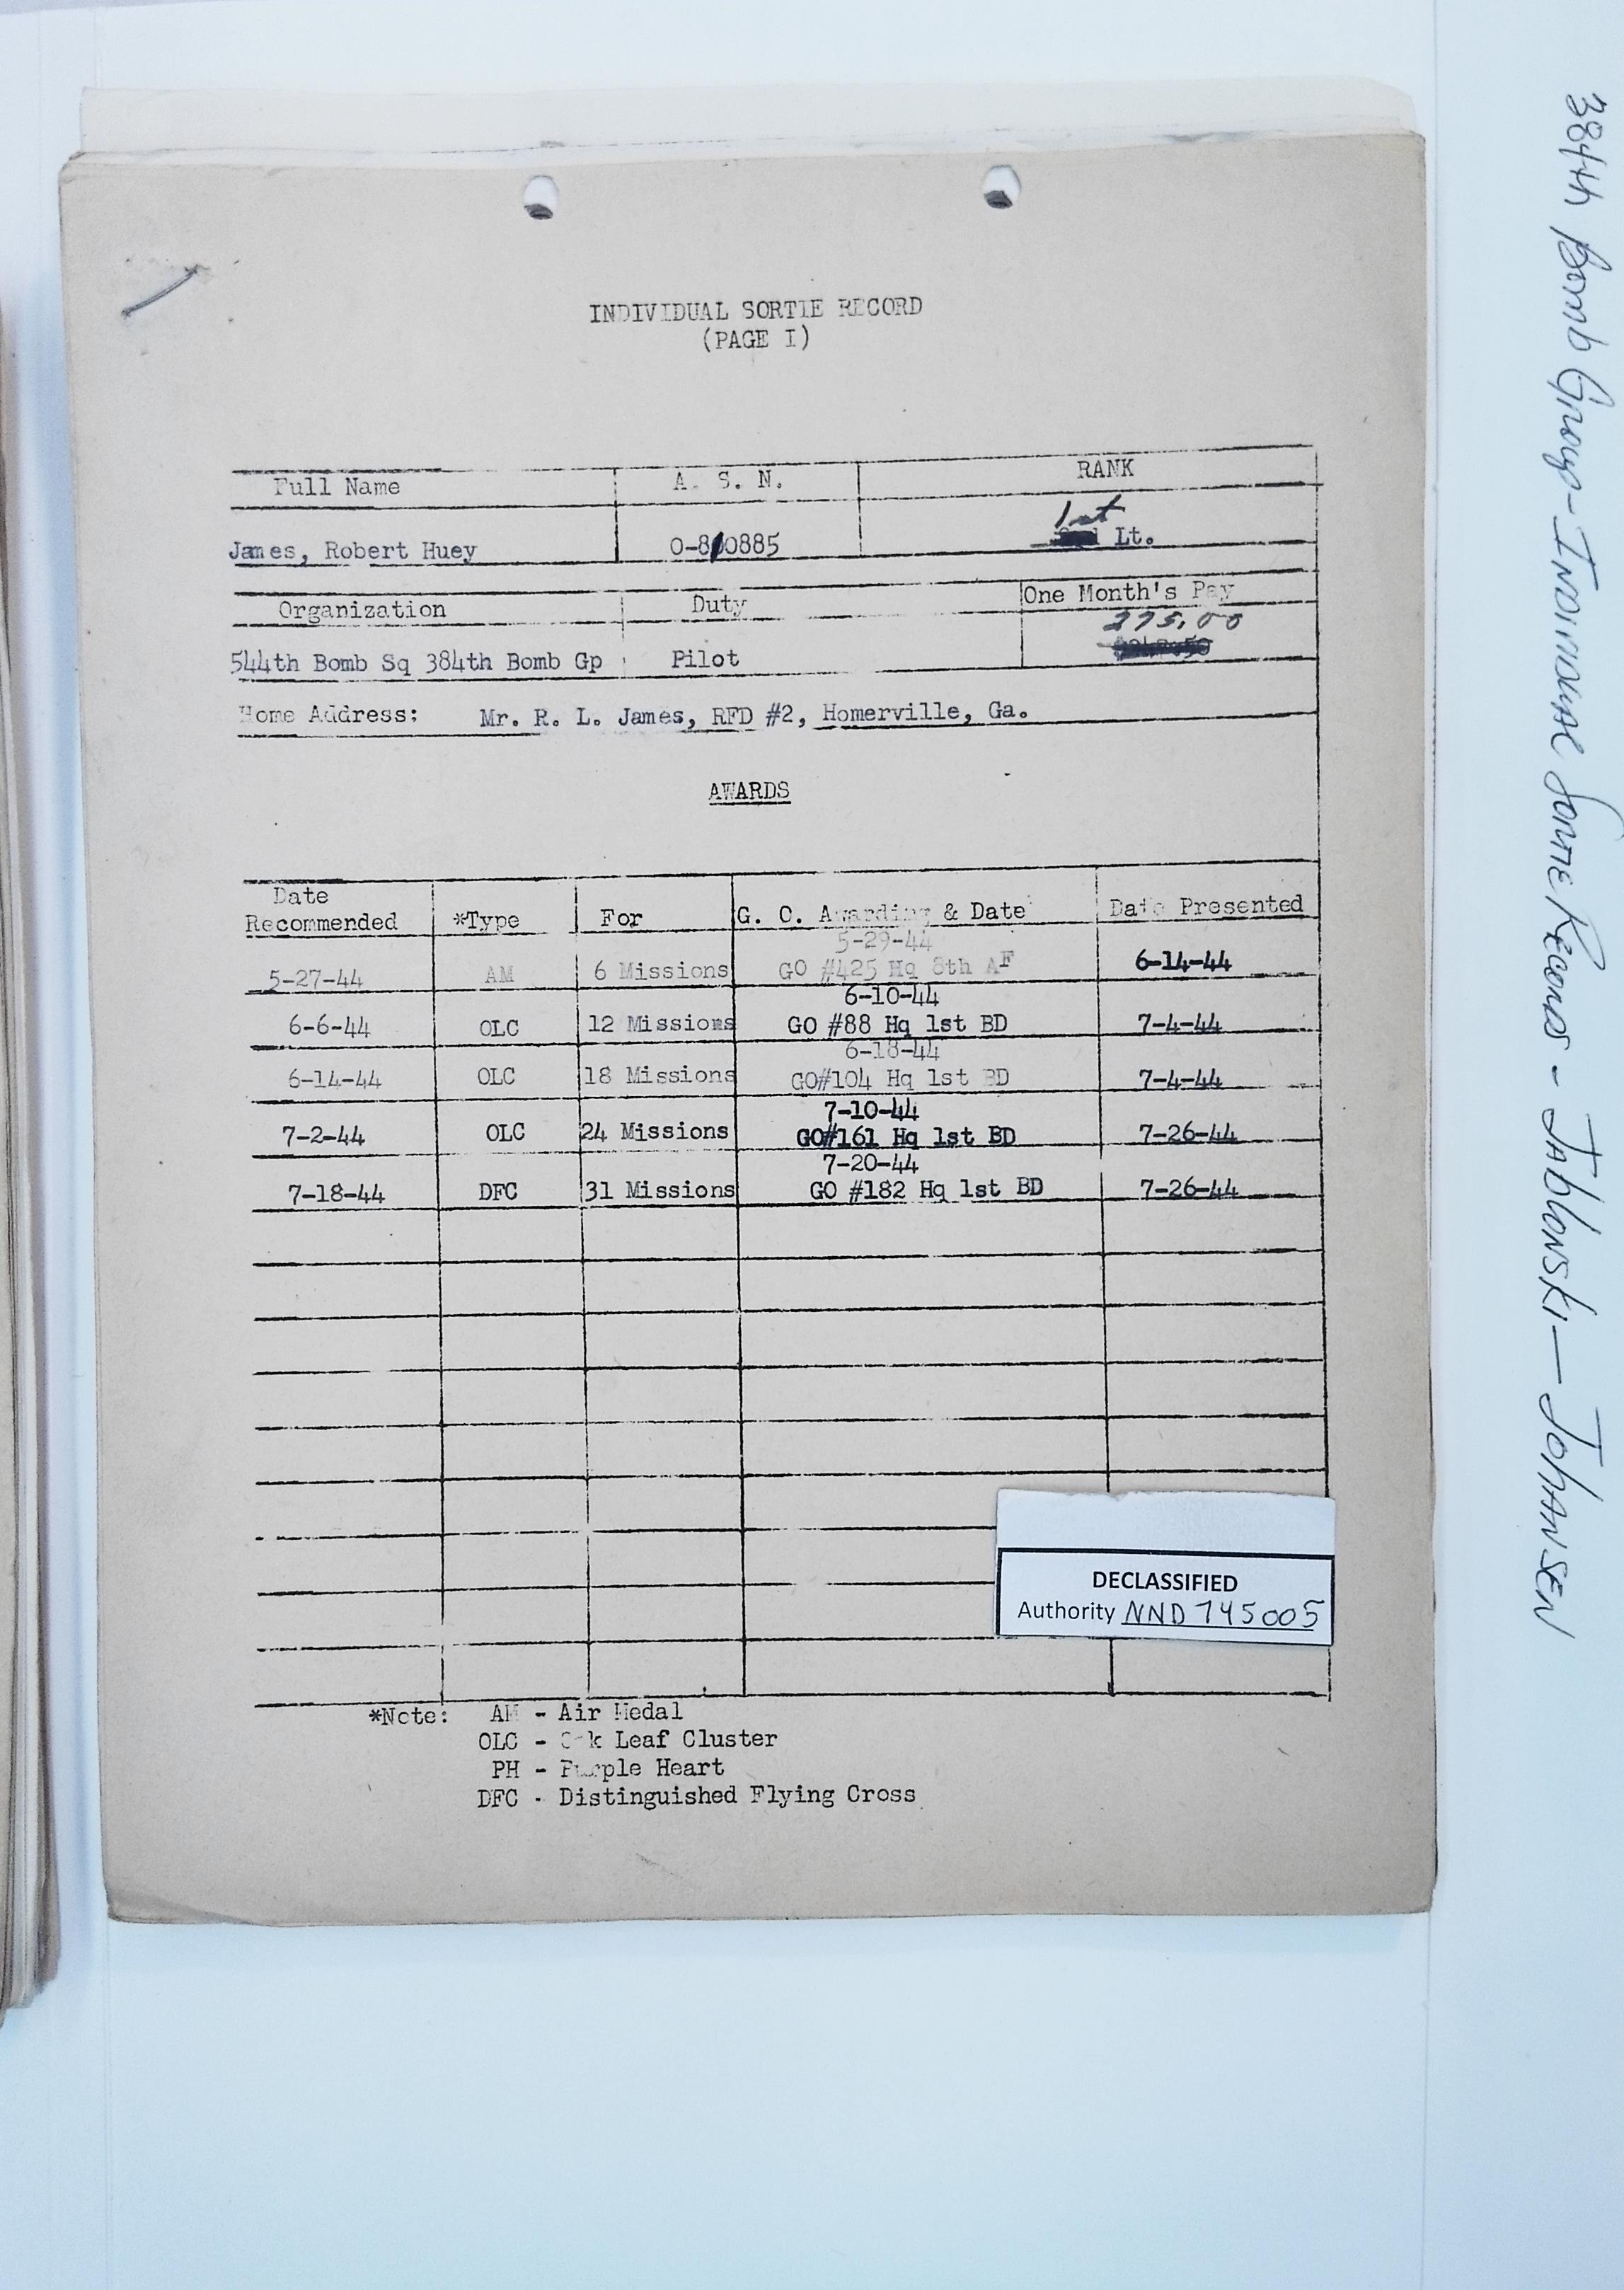 INDIVIDUAL SORTIE RECORD
(PAGE I)
Full Name A. S. N. RANK
James, Robert Huey O-810885 1st Lt.
Organization Duty One Month's Pay
275.00
544th Bomb Sq 384th Bomb Gp Pilot
Home Address: Mr. R. L. James, RFD #2, Homerville, Ga.
AWARDS
Date
Recommended *Type For G. C. Awarding & Date Date Presented
5-29-44
5-27-44 AM 6 Missions GO #425 Hq 8th AF 6-14-44
6-10-44
6-6-44 OLC 12 Missions GO #88 Hq 1st BD 7-4-44
6-18-44
6-14-44 OLC 18 Missions GO#104 Hq 1st BD 7-4-44
7-10-44
7-2-44 OLC 24 Missions GO#161 Hq 1st BD 7-26-44
7-20-44
7-18-44 DFC 31 Missions GO #182 Hq 1st BD 7-26-44
DECLASSIFIED
Authority NND 745005
*Note: AM - Air Medal
OLC - Oak Leaf Cluster
PH - Purple Heart
DFC - Distinguished Flying Cross
384th Bomb Group - Individual Sortie Records - Jablonski — Johansen